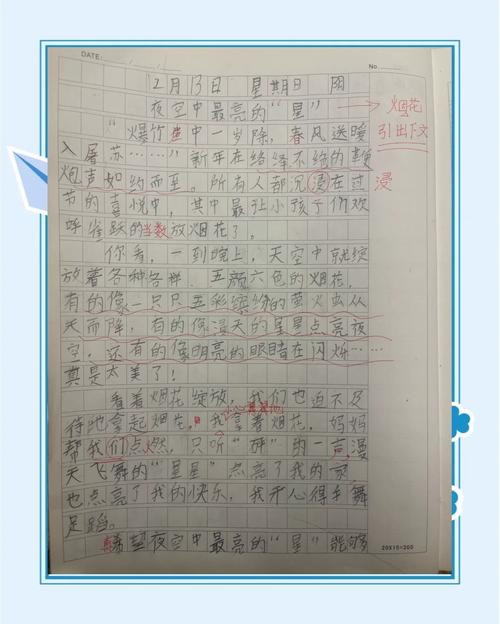 DATE:
No.
2月13日 星期日 阳
夜空中最亮的“星” 烟花
“爆竹声中一岁除，春风送暖 引出下文
入屠苏……”新年在络绎不绝的鞭
炮声如约而至。所有人都沉浸在过 浸
节的喜悦中，其中最让小孩子们欢
呼雀跃的当数放烟花了。
你看，一到晚上，天空中就绽
放着各种各样、五颜六色的烟花，
有的像一只只五彩缤纷的萤火虫从
天而降，有的像漫天的星星点亮夜
空，还有的像明亮的眼睛在闪烁……
真是太美了！
看着烟花绽放，我们也迫不及
待地拿起烟花，我小心翼翼地拿着烟花，妈妈
帮我们点燃，只听“砰”的一声，漫
天飞舞的“星星”点亮了我的
也点亮了我的快乐，我开心得手舞
足蹈。
希望夜空中最亮的“星”能够
20X15=300